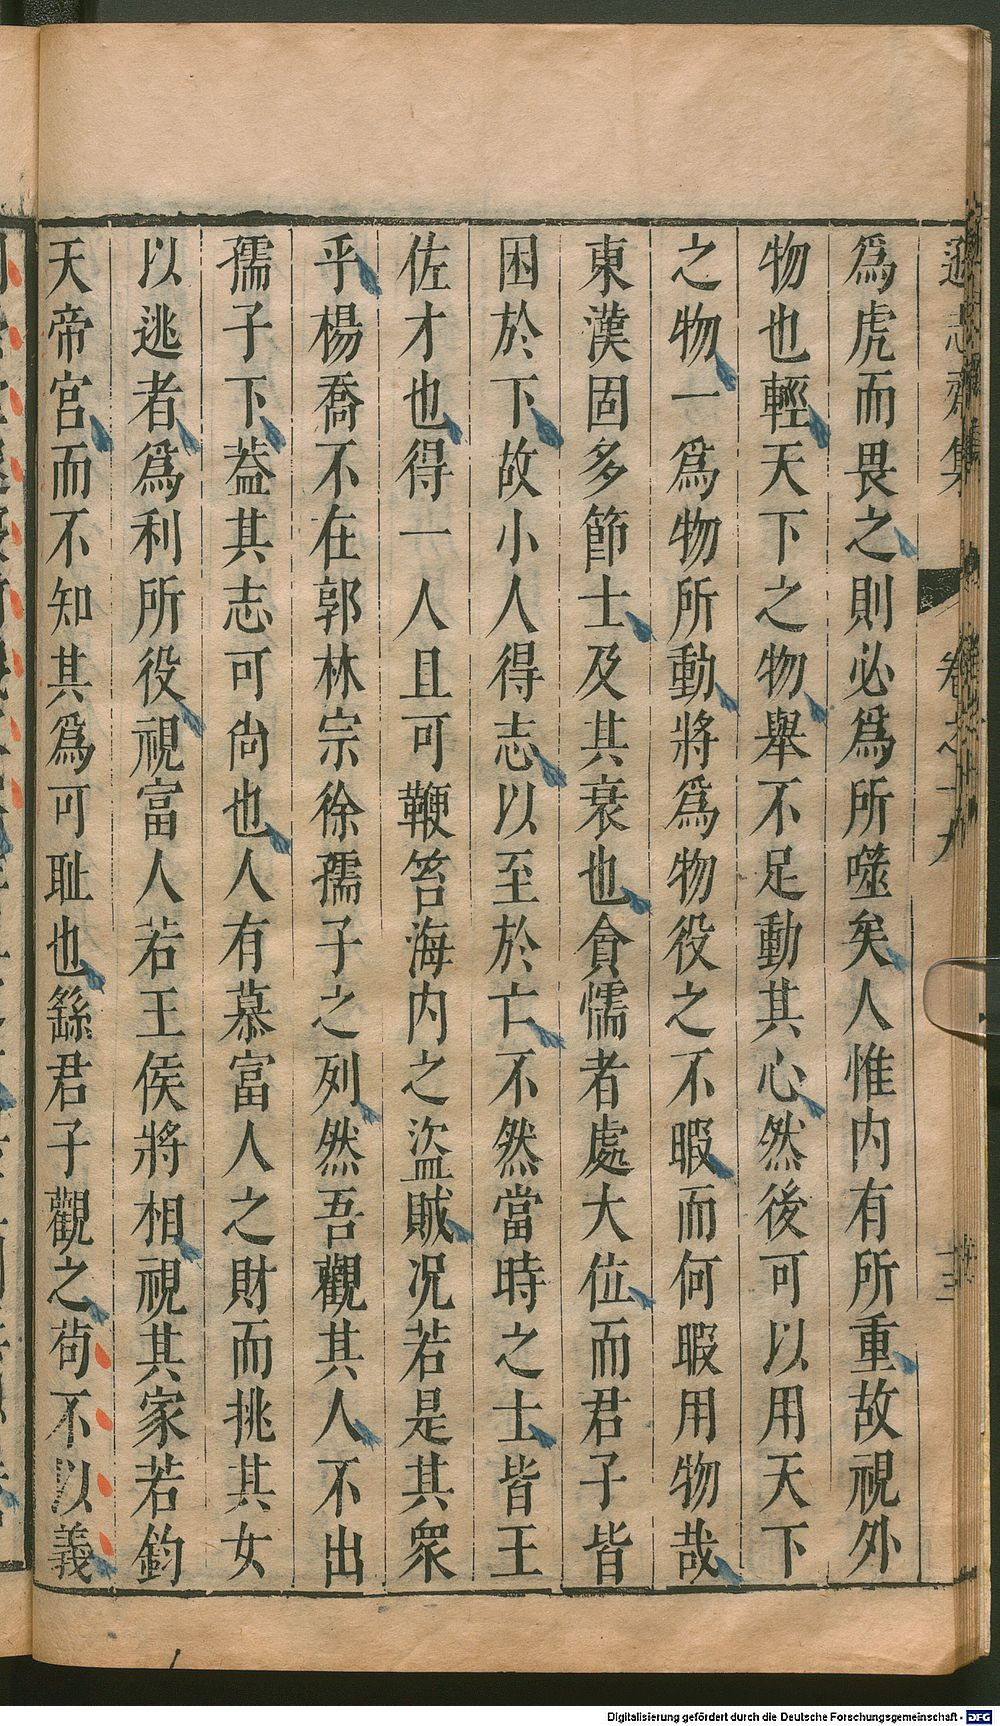 遜志齋集 卷之十九 十三
爲虎而畏之則必爲所噬矣人惟内有所重故視外
物也輕天下之物舉不足動其心然後可以用天下
之物一爲物所動將爲物役之不暇而何暇用物哉
東漢固多節士及其衰也貪懦者處大位而君子皆
困於下故小人得志以至於亡不然當時之士皆王
佐才也得一人且可鞭笞海内之盜賊况若是其衆
乎楊喬不在郭林宗徐孺子之列然吾觀其人不出
孺子下葢其志可尚也人有慕富人之財而挑其女
以逃者爲利所役視富人若王侯將相視其家若鈞
天帝宮而不知其爲可耻也繇君子觀之苟不以義
Digitalisierung gefördert durch die Deutsche Forschungsgemeinschaft - DFG